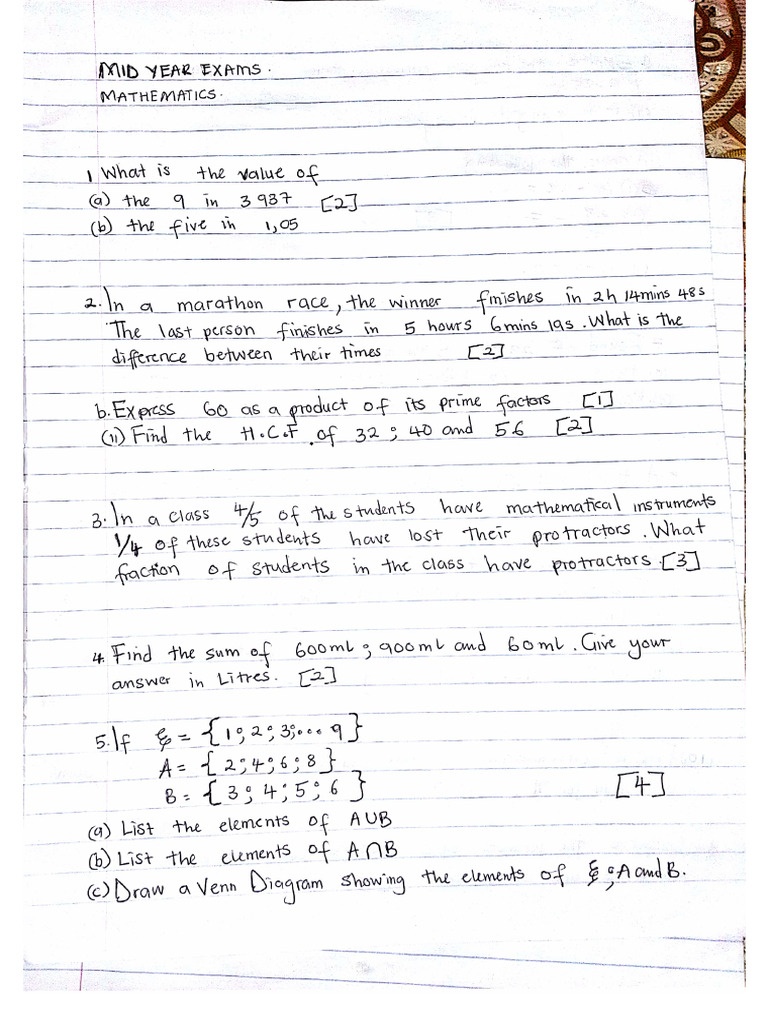 MID YEAR EXAMS.
MATHEMATICS.
1 What is the value of
(a) the 9 in 3 937 [2]
(b) the five in 1,05
2. In a marathon race, the winner finishes in 2h 14mins 48s
The last person finishes in 5 hours 6mins 19s. What is the
difference between their times [2]
b. Express 60 as a product of its prime factors [1]
(ii) Find the H.C.F. of 32 ; 40 and 56 [2]
3. In a class 4/5 of the students have mathematical instruments
1/4 of these students have lost their protractors. What
fraction of students in the class have protractors. [3]
4. Find the sum of 600ml ; 900ml and 60ml. Give your
answer in Litres. [2]
5. If ξ = {1;2;3;...9}
A = {2;4;6;8}
B = {3;4;5;6} [4]
(a) List the elements of A∪B
(b) List the elements of A∩B
(c) Draw a Venn Diagram showing the elements of ξ ; A and B.